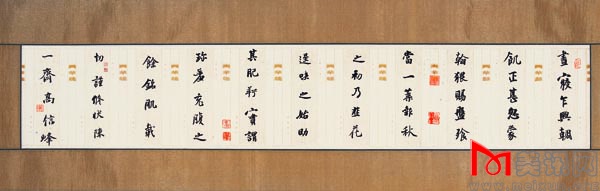 晝寢乍興朝
飢正甚忽蒙
翰猥賜盤飧
當一葉報秋
之初乃韭花
逞味之始助
其肥羜實謂
珍羞充腹之
餘銘肌載
切謹修狀陳
一齋高信峰